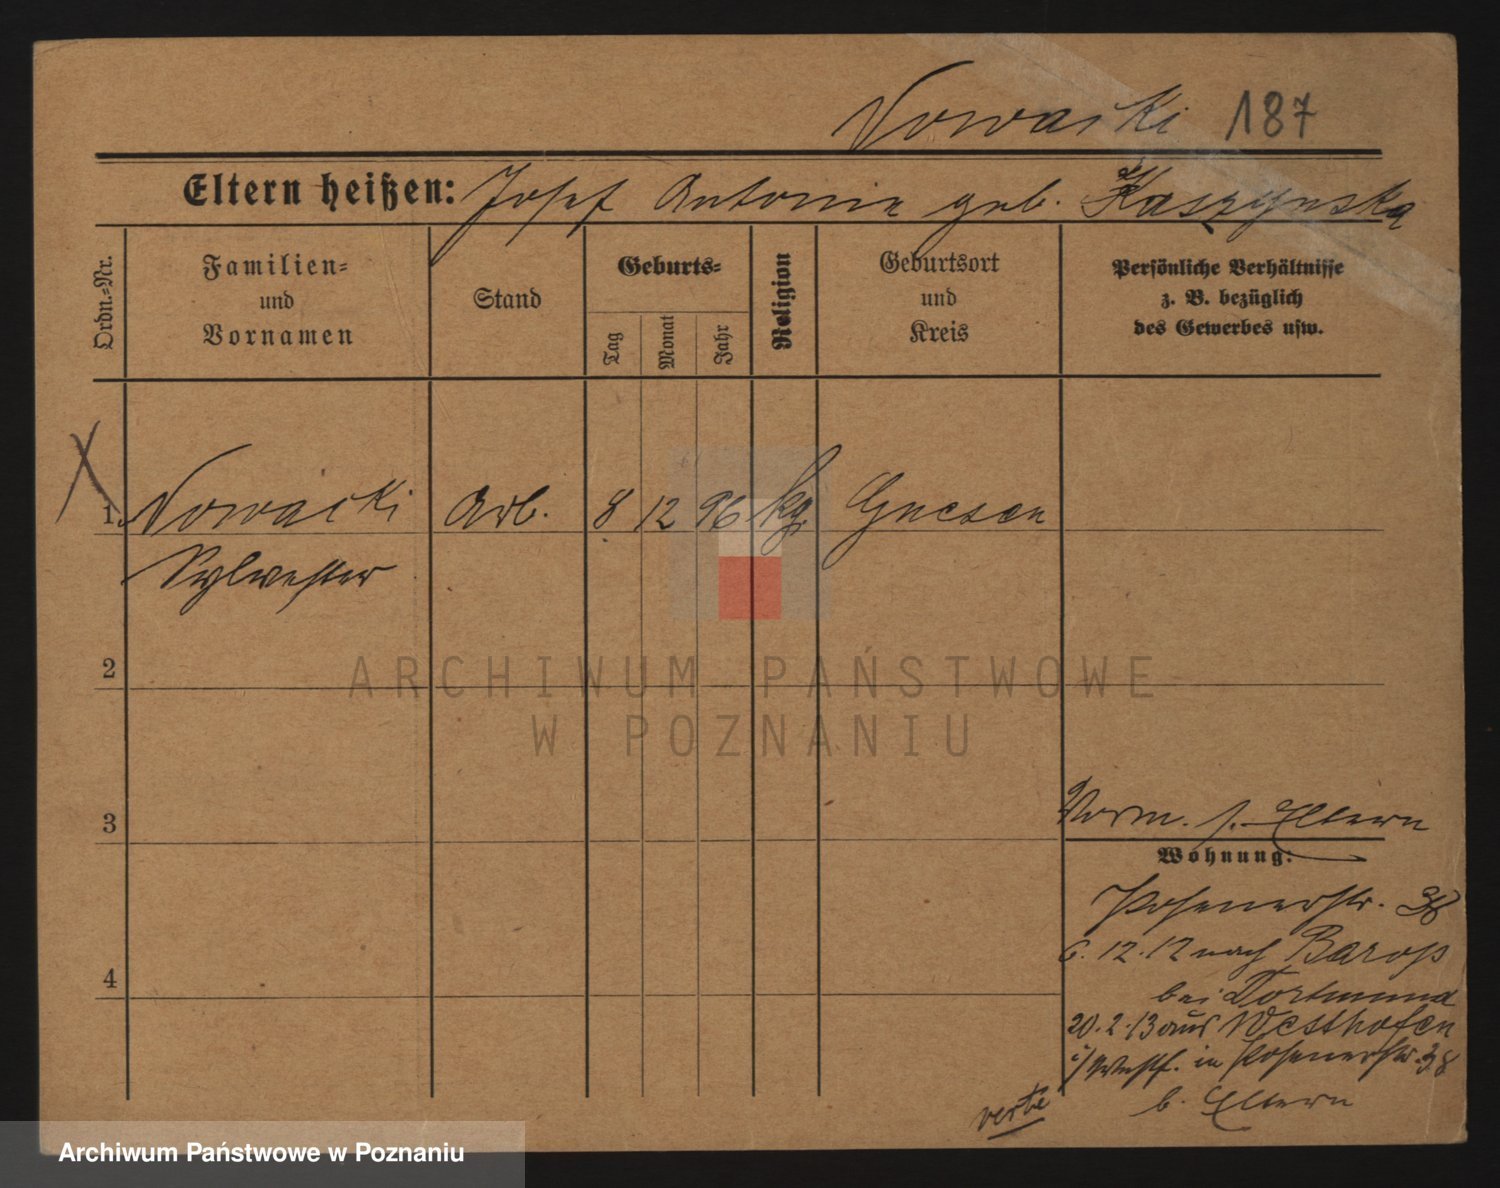 Nowacki 187
Eltern heißen: Josef Antonie geb. Kaszynska
Ordn.=Nr.
Familien=
und
Vornamen
Stand
Geburts=
Tag
Monat
Jahr
Religion
Geburtsort
und
Kreis
Persönliche Verhältnisse
z. B. bezüglich
des Gewerbes usw.
X
1. Nowacki Arb. 8 12 96 kg. Gnesen
Sylwester
2
ARCHIWUM PAŃSTWOWE
W POZNANIU
3
Vorm. s. Eltern
Wohnung:
Posenerstr. 38
6.12.12 nach Barop
4
bei Dortmund
20.2.13 aus Westhofen
i/Westf. in Posenerstr. 38
b. Eltern
verte
Archiwum Państwowe w Poznaniu